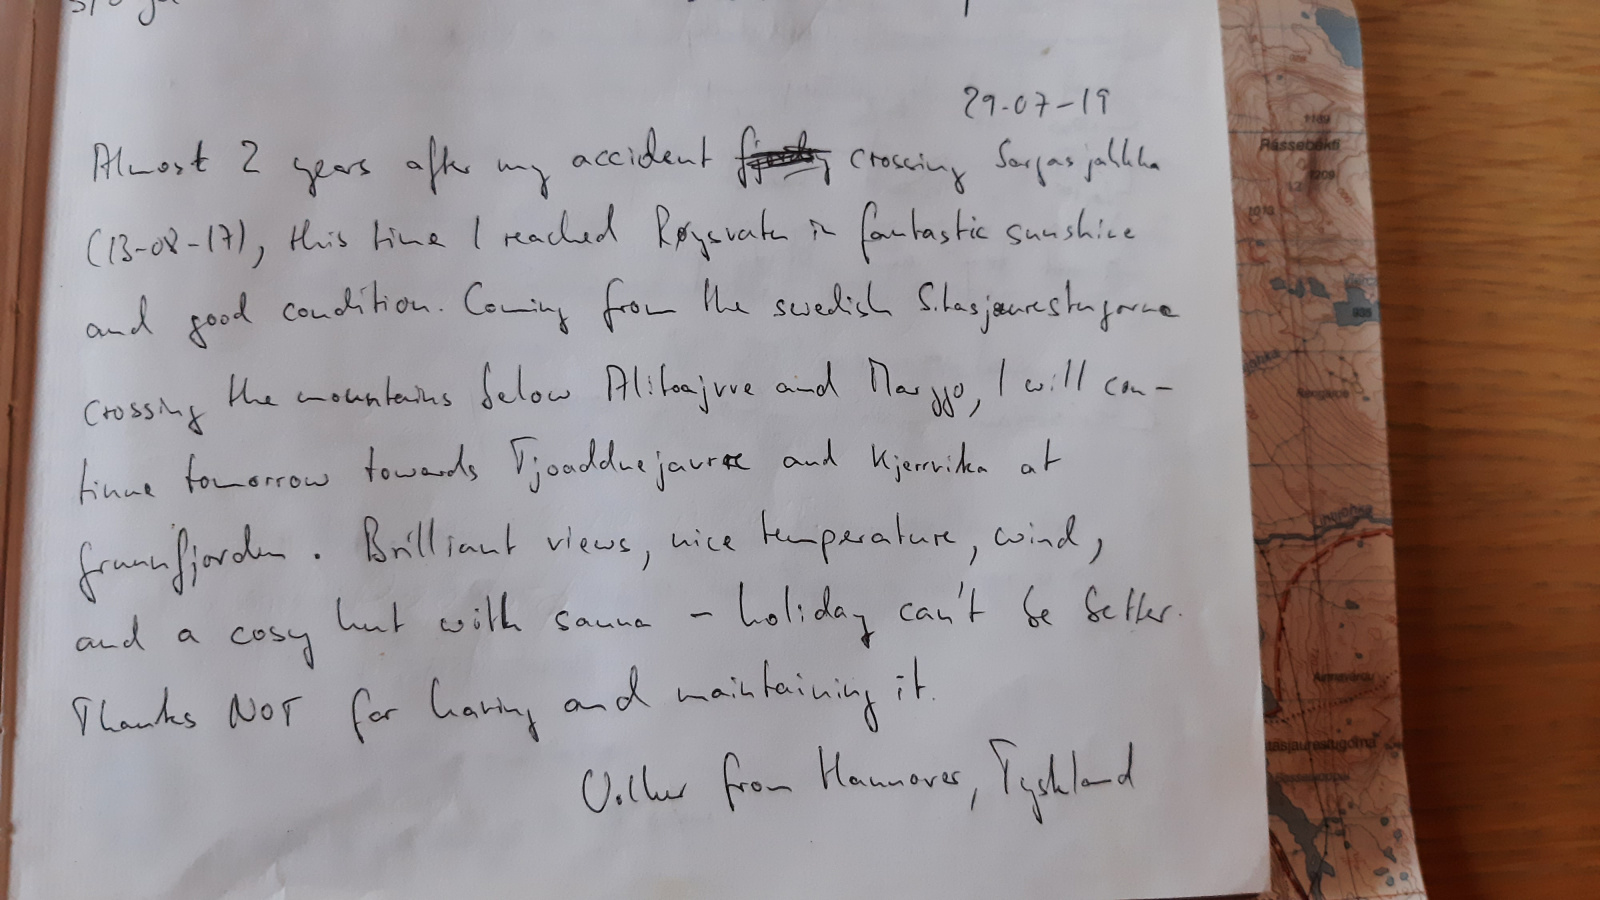 29-07-19
Almost 2 years after my accident crossing Sargasjahkka
(13-08-17), this time I reached Røysvatn in fantastic sunshine
and good condition. Coming from the swedish Sitasjaurestugorna
crossing the mountains below Alitoajvve and Marggo, I will con-
tinue tomorrow towards Tjoaddnejavrre and Kjerrvika at
grunnfjorden. Brilliant views, nice temperature, wind,
and a cosy hut with sauna – holiday can't be better.
Thanks NOT for having and maintaining it.
Volker from Hannover, Tyskland
1189
Rássebákti
1209
1010
935